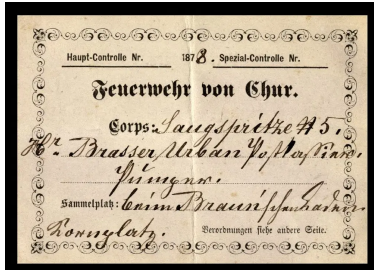 Haupt-Controlle Nr. 1878. Spezial-Controlle Nr.
Feuerwehr von Chur.
Corps: Saugspritze # 5.
Hr. Brasser Urban Postkassier.
Pumper.
Sammelplatz: beim Braun'schen Laden
Kornplatz. Verordnungen siehe andere Seite.